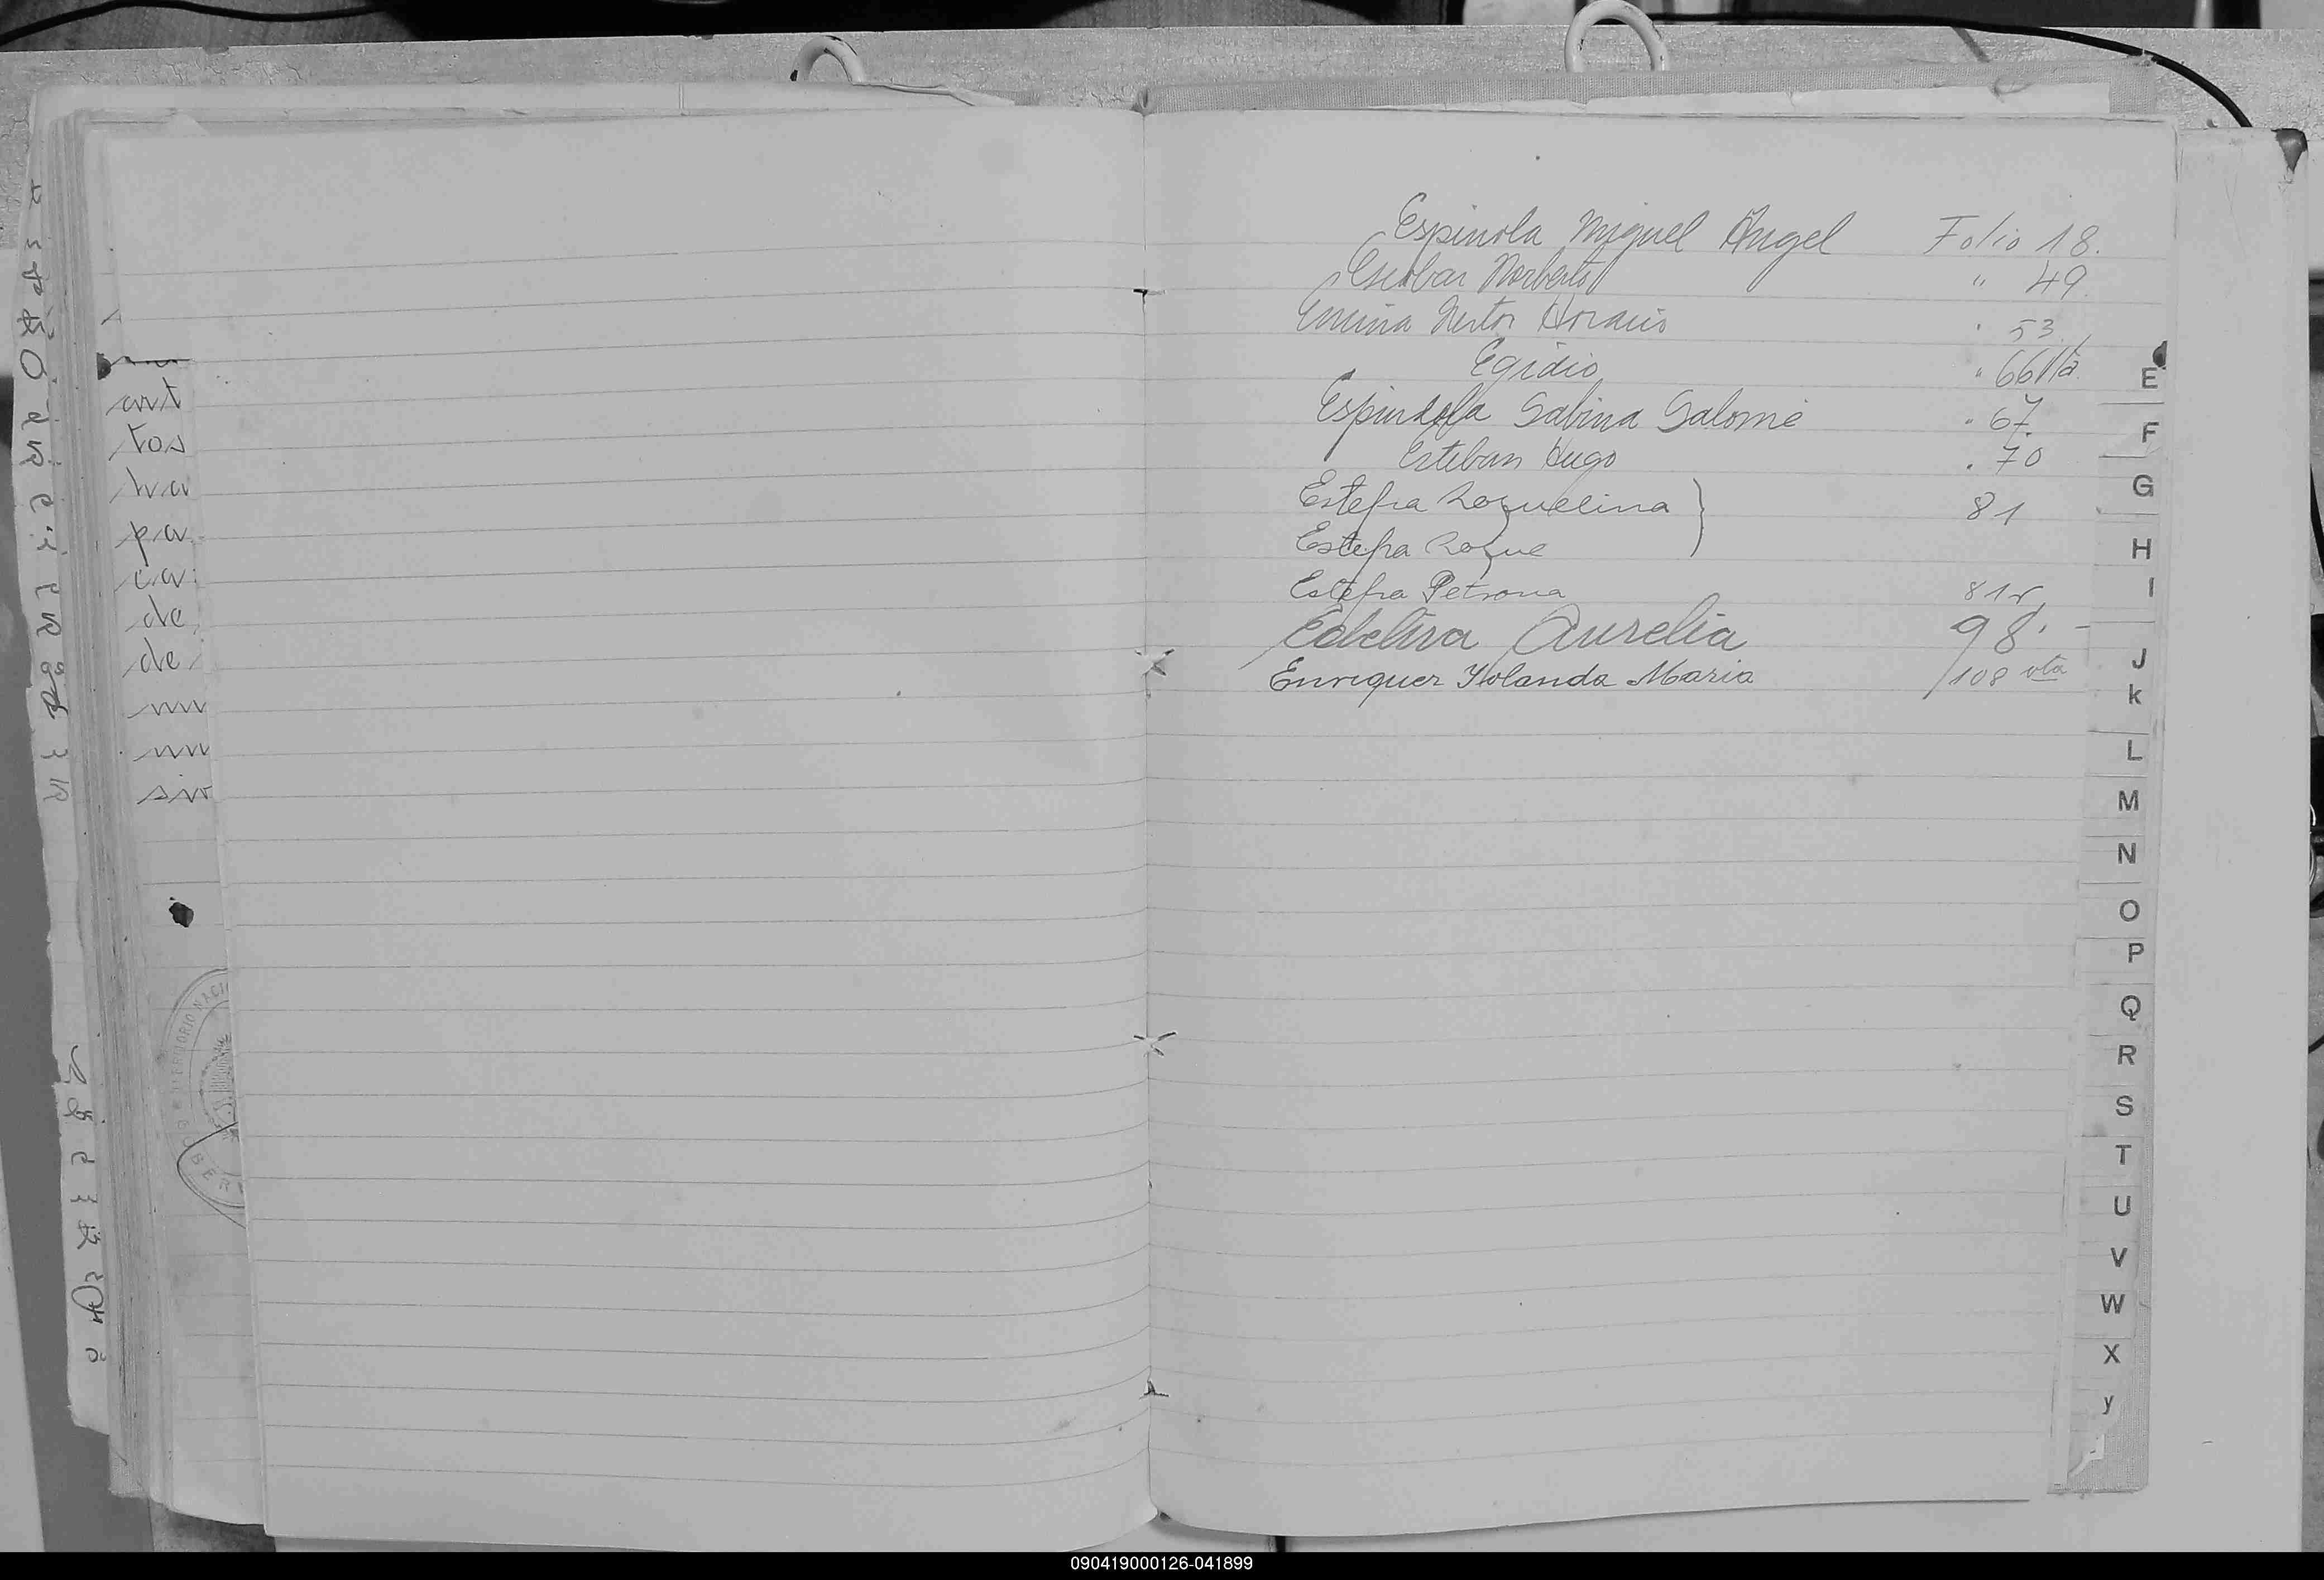 Espinola Miguel Angel Folio 18.
Escobar Norberto " 49.
Horacio 53.
Egidio " 66 vta.
Espindola Sabina Salomé " 67.
Esteban Hugo " 70
Estefra Roquelina } 81
Estefra Roque
Estefra Petrona 81v
Edelira Aurelia 98. -
Enriquez Yolanda Maria 108 vta
E
F
G
H
I
J
k
L
M
N
O
P
Q
R
S
T
U
V
W
X
y
ant
tos
ha
pa
ca
de
de
090419000126-041899